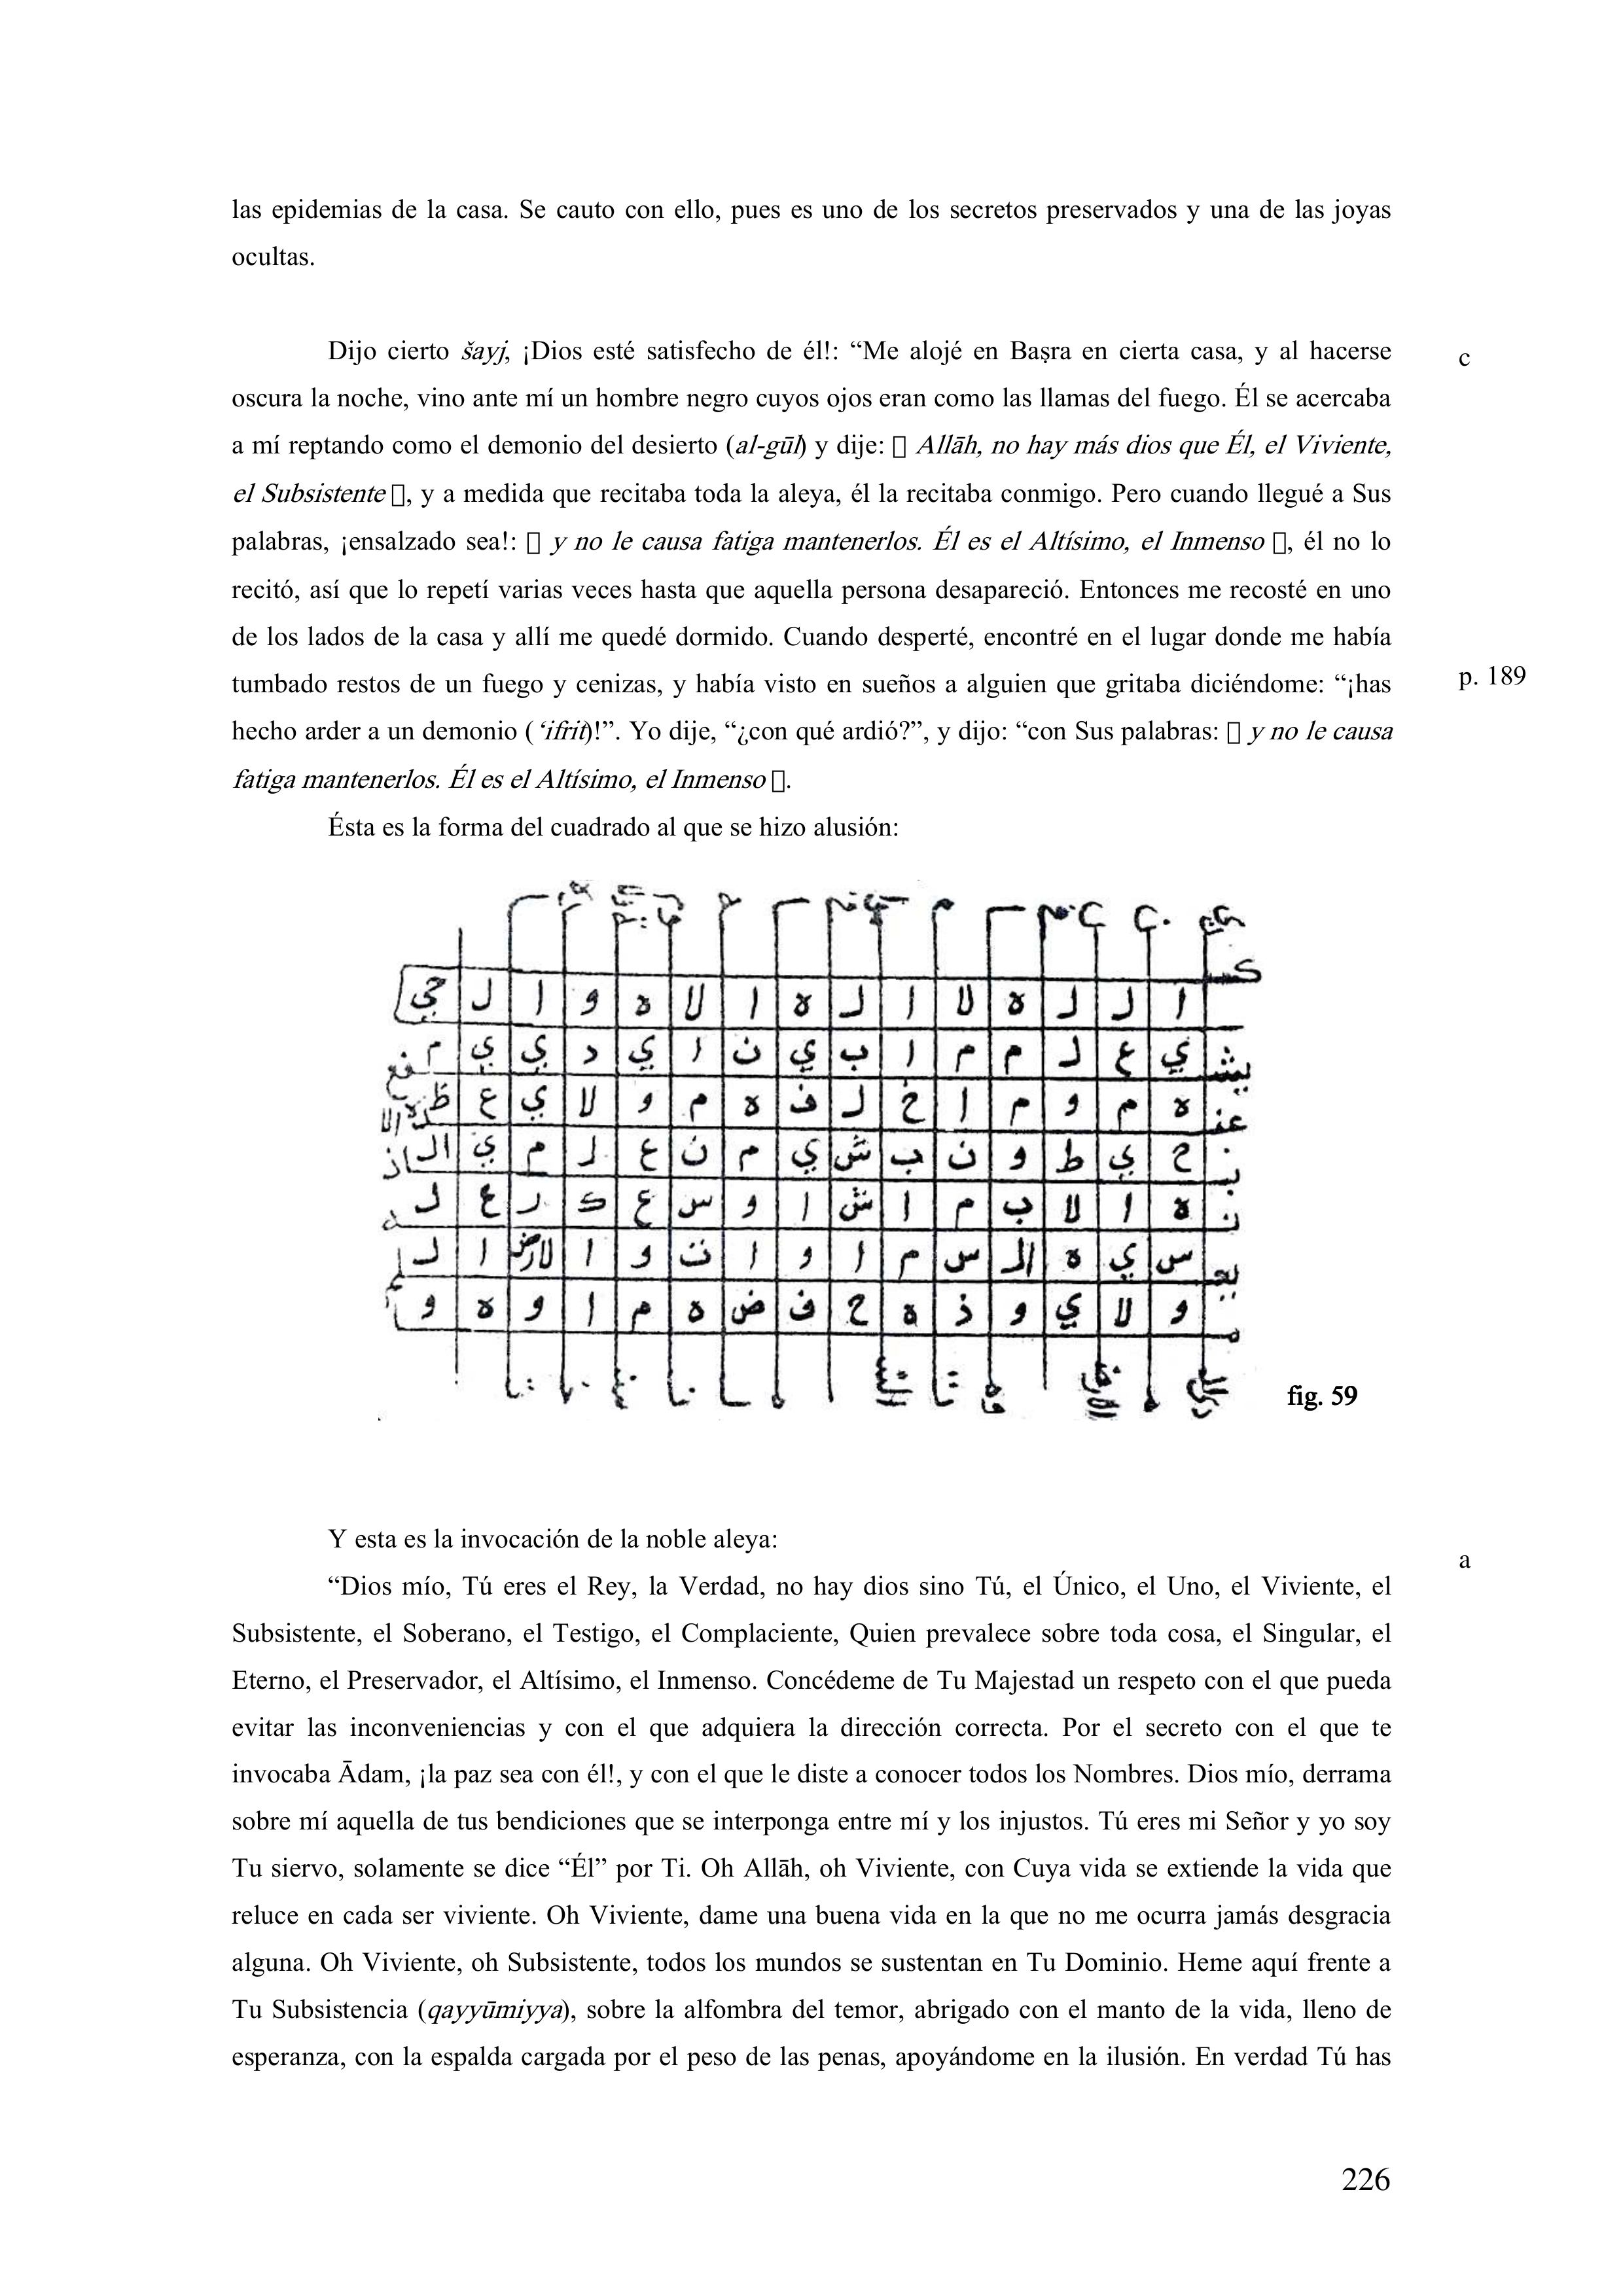 las epidemias de la casa. Se cauto con ello, pues es uno de los secretos preservados y una de las joyas
ocultas.
Dijo cierto šayj, ¡Dios esté satisfecho de él!: “Me alojé en Baṣra en cierta casa, y al hacerse
c
oscura la noche, vino ante mí un hombre negro cuyos ojos eran como las llamas del fuego. Él se acercaba
a mí reptando como el demonio del desierto (al-gūl) y dije: ▯ Allāh, no hay más dios que Él, el Viviente,
el Subsistente ▯, y a medida que recitaba toda la aleya, él la recitaba conmigo. Pero cuando llegué a Sus
palabras, ¡ensalzado sea!: ▯ y no le causa fatiga mantenerlos. Él es el Altísimo, el Inmenso ▯, él no lo
recitó, así que lo repetí varias veces hasta que aquella persona desapareció. Entonces me recosté en uno
de los lados de la casa y allí me quedé dormido. Cuando desperté, encontré en el lugar donde me había
tumbado restos de un fuego y cenizas, y había visto en sueños a alguien que gritaba diciéndome: “¡has
p. 189
hecho arder a un demonio (‘ifrit)!”. Yo dije, “¿con qué ardió?”, y dijo: “con Sus palabras: ▯ y no le causa
fatiga mantenerlos. Él es el Altísimo, el Inmenso ▯.
Ésta es la forma del cuadrado al que se hizo alusión:
ا ل ل ه لا ا ل ه ا لا ه و ا ل حي
ي ع ل م م ا ب ي ن ا ي د ي ي م
ه م و م ا خ ل ف ه م و لا ي ع ظ
ح ي ط و ن ب ش ي م ن ع ل م ي ال
ه ا لا ب م ا ش ا و س ع ك ر ع ل
س ي ه ال س م ا و ا ت و ا لارض ا ل
و لا ي و ذ ه ح ف ض ه م ا و ه و
fig. 59
Y esta es la invocación de la noble aleya:
a
“Dios mío, Tú eres el Rey, la Verdad, no hay dios sino Tú, el Único, el Uno, el Viviente, el
Subsistente, el Soberano, el Testigo, el Complaciente, Quien prevalece sobre toda cosa, el Singular, el
Eterno, el Preservador, el Altísimo, el Inmenso. Concédeme de Tu Majestad un respeto con el que pueda
evitar las inconveniencias y con el que adquiera la dirección correcta. Por el secreto con el que te
invocaba Ādam, ¡la paz sea con él!, y con el que le diste a conocer todos los Nombres. Dios mío, derrama
sobre mí aquella de tus bendiciones que se interponga entre mí y los injustos. Tú eres mi Señor y yo soy
Tu siervo, solamente se dice “Él” por Ti. Oh Allāh, oh Viviente, con Cuya vida se extiende la vida que
reluce en cada ser viviente. Oh Viviente, dame una buena vida en la que no me ocurra jamás desgracia
alguna. Oh Viviente, oh Subsistente, todos los mundos se sustentan en Tu Dominio. Heme aquí frente a
Tu Subsistencia (qayyūmiyya), sobre la alfombra del temor, abrigado con el manto de la vida, lleno de
esperanza, con la espalda cargada por el peso de las penas, apoyándome en la ilusión. En verdad Tú has
226